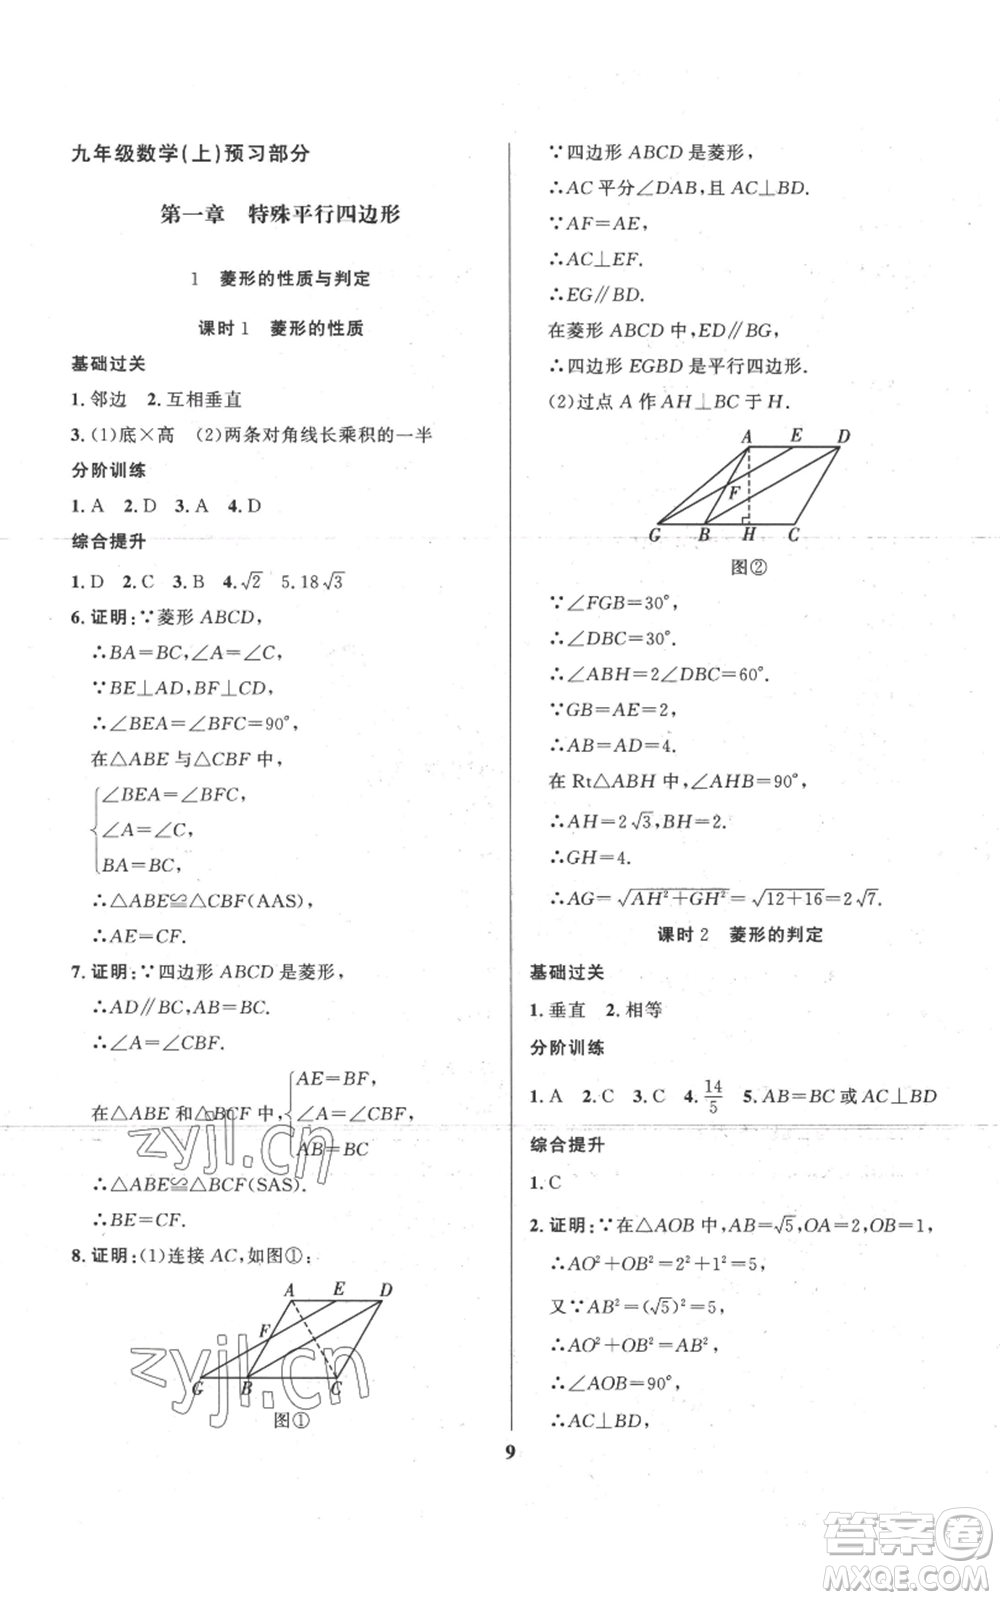 九年级数学(上)预习部分
第一章 特殊平行四边形
1 菱形的性质与判定
课时1 菱形的性质
基础过关
1.邻边 2.互相垂直
3.(1)底×高 (2)两条对角线长乘积的一半
分阶训练
1.A 2.D 3.A 4.D
综合提升
1.D 2.C 3.B 4.√2 5.18√3
6.证明:∵菱形ABCD,
∴BA=BC,∠A=∠C,
∵BE⊥AD,BF⊥CD,
∴∠BEA=∠BFC=90°,
在△ABE与△CBF中,
∠BEA=∠BFC,
∠A=∠C,
BA=BC,
∴△ABE≌△CBF(AAS),
∴AE=CF.
7.证明:∵四边形ABCD是菱形,
∴AD∥BC,AB=BC.
∴∠A=∠CBF.
AE=BF,
在△ABE和△BCF中, ∠A=∠CBF,
AB=BC
∴△ABE≌△BCF(SAS).
∴BE=CF.
8.证明:(1)连接AC,如图①:
A E D
F
G B C
图①
∵四边形ABCD是菱形,
∴AC平分∠DAB,且AC⊥BD.
∵AF=AE,
∴AC⊥EF.
∴EG∥BD.
在菱形ABCD中,ED∥BG,
∴四边形EGBD是平行四边形.
(2)过点A作AH⊥BC于H.
A E D
F
G B H C
图②
∵∠FGB=30°,
∴∠DBC=30°.
∴∠ABH=2∠DBC=60°.
∵GB=AE=2,
∴AB=AD=4.
在Rt△ABH中,∠AHB=90°,
∴AH=2√3,BH=2.
∴GH=4.
∴AG=√(AH²+GH²)=√(12+16)=2√7.
课时2 菱形的判定
基础过关
1.垂直 2.相等
分阶训练
1.A 2.C 3.C 4.14/5 5.AB=BC或AC⊥BD
综合提升
1.C
2.证明:∵在△AOB中,AB=√5,OA=2,OB=1,
∴AO²+OB²=2²+1²=5,
又∵AB²=(√5)²=5,
∴AO²+OB²=AB²,
∴∠AOB=90°,
∴AC⊥BD,
9
zyjl.cn
zyjl.cn
答案卷
MXQE.COM